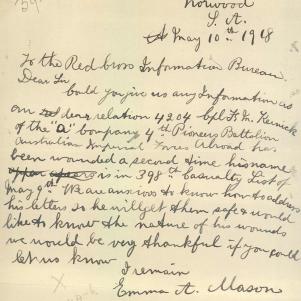 Norwood
S. A.
May 10th 1918
To the Red Cross Information Bureau
Dear Sir
Could you give us any Information as
our dear relation 4204 Cpl F. W. Kernick
of the "A" Company 4th Pioneers Battalion
Australian Imperial Force Abroad has
been wounded a second time his name
appears is in 398th Casualty List of
May 9th We are anxious to know how to address
his letters so he will get them safe & would
like to know the nature of his wounds
we would be very thankful if you could
let us know
I remain
Emma A. Mason